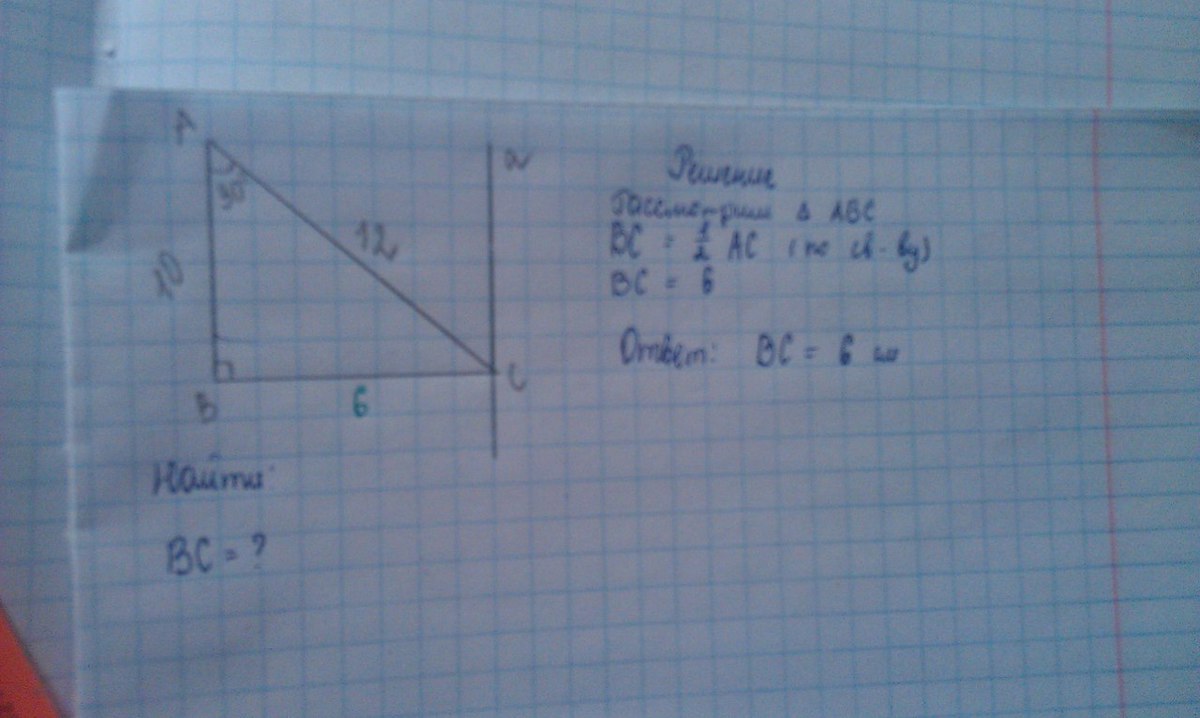 A
a
30
12
10
B
6
C
Найти:
BC = ?
Решение
Рассмотрим Δ ABC
BC = 1/2 AC (по св-ву)
BC = 6
Ответ: BC = 6 см